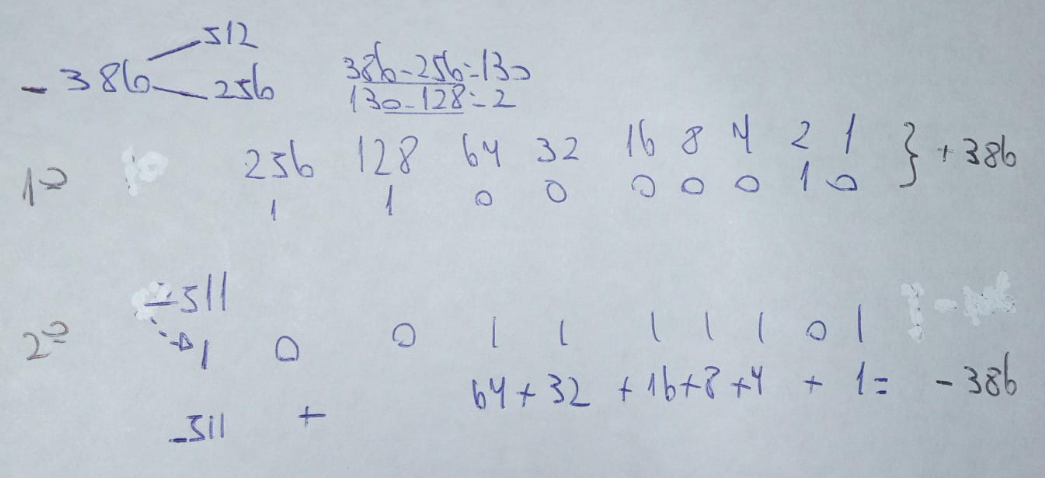 512
- 386 256 386-256=130
130-128=2
256 128 64 32 16 8 4 2 1 } + 386
1º 1 1 0 0 0 0 0 1 0
-511
2º 1 0 0 1 1 1 1 1 0 1
-511 + 64+32 +16+8+4 + 1= -386